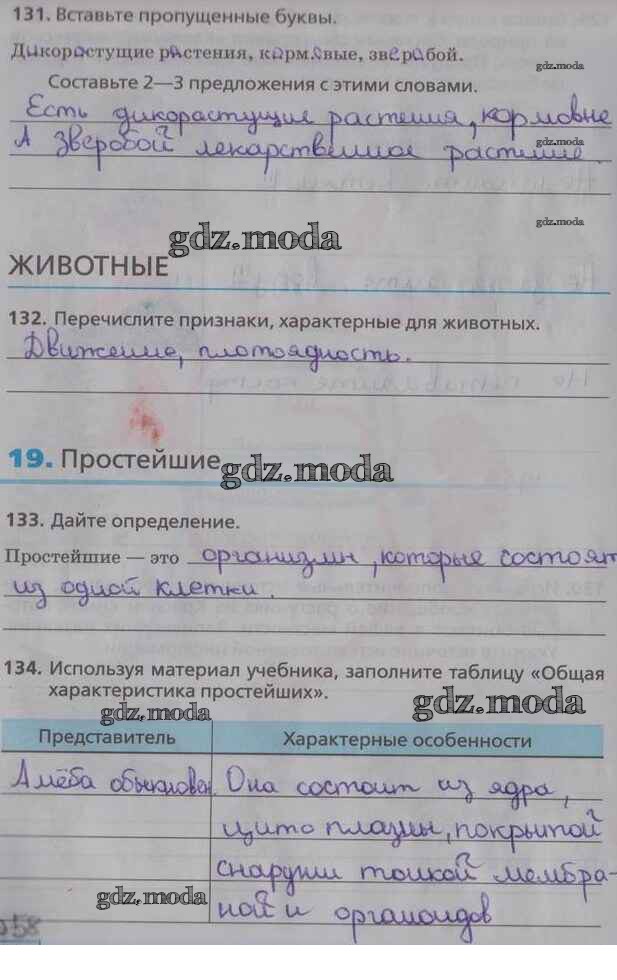 131. Вставьте пропущенные буквы.
Дикорастущие растения, кормовые, зверобой.
gdz.moda
Составьте 2—3 предложения с этими словами.
gdz.moda
Есть дикорастущие растения, кормовые
А зверобой лекарственное растение.
gdz.moda
gdz.moda
gdz.moda
ЖИВОТНЫЕ
132. Перечислите признаки, характерные для животных.
Движение, плотоядность.
19. Простейшие
gdz.moda
133. Дайте определение.
Простейшие — это организмы, которые состоят
из одной клетки.
134. Используя материал учебника, заполните таблицу «Общая
характеристика простейших».
gdz.moda
gdz.moda
Представитель Характерные особенности
Амёба обыкновен Она состоит из ядра,
цитоплазмы, покрытой
снаружи тонкой мембра-
gdz.moda
ной и органоидов
58